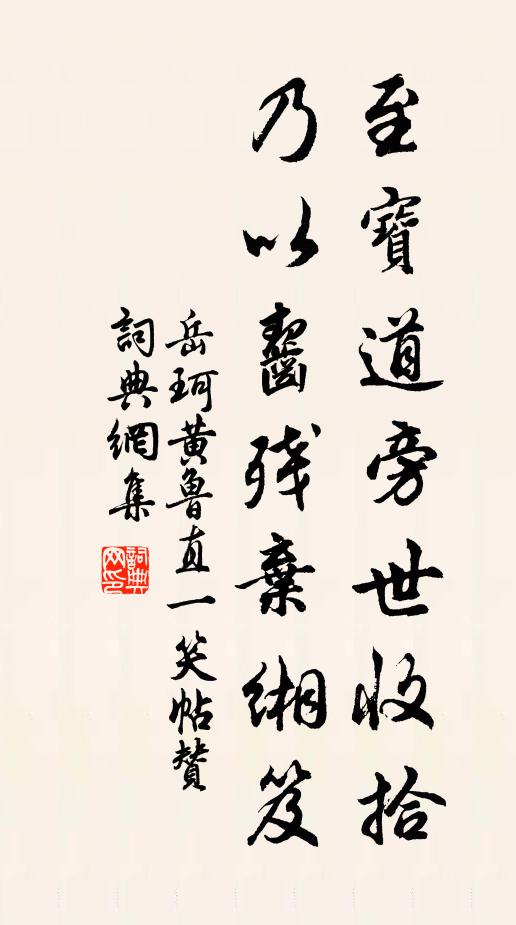 至寶道旁世收拾
乃以齧殘棄緗笈
岳珂黄魯直一笑帖贊
詞典網集
詞典
网印